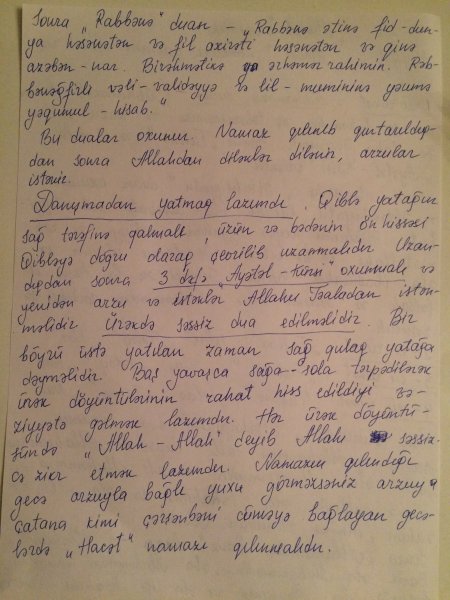 Sonra „Rabbənə" duası – „Rabbənə ətinə fid-dun-
ya həsənətən və fil axirəti həsənətən və qinə
azəbən-nar. Birəhmətikə yə ərhəmər rahimin. Rəb-
bənəğfirli vəli-validəyyə və lil-mumininə yəumə
yəqumul-hisab."
Bu dualar oxunur. Namaz qılınıb qurtarıldıq-
dan sonra Allahdan diləklər dilənir, arzular
istənir.
Danışmadan yatmaq lazımdır. Qiblə yatağın
sağ tərəfinə qalmalı, üzün və bədənin ön hissəsi
Qibləyə doğru olaraq çevrilib uzanmalıdır. Uzan-
dıqdan sonra 3 dəfə „Ayətəl-kürsi" oxunmalı və
yenidən arzu və istəklər Allahu Təaladan istən-
məlidir. Ürəkdə səssiz dua edilməlidir. Bir
böyrü üstə yatılan zaman sağ qulaq yatağa
dəyməlidir. Baş yavaşca sağa-sola tərpədilərək
ürək döyüntülərinin rahat hiss edildiyi və-
ziyyətə gəlmək lazımdır. Hər ürək döyüntü-
sündə „Allah-Allah" deyib Allahı səssiz-
cə zikr etmək lazımdır. Namazın qılındığı
gecə arzuyla bağlı yuxu görməzsəniz arzuya
çatana kimi çərşənbəni cüməyə bağlayan gecə-
lərdə „Hacət" namazı qılınmalıdır.